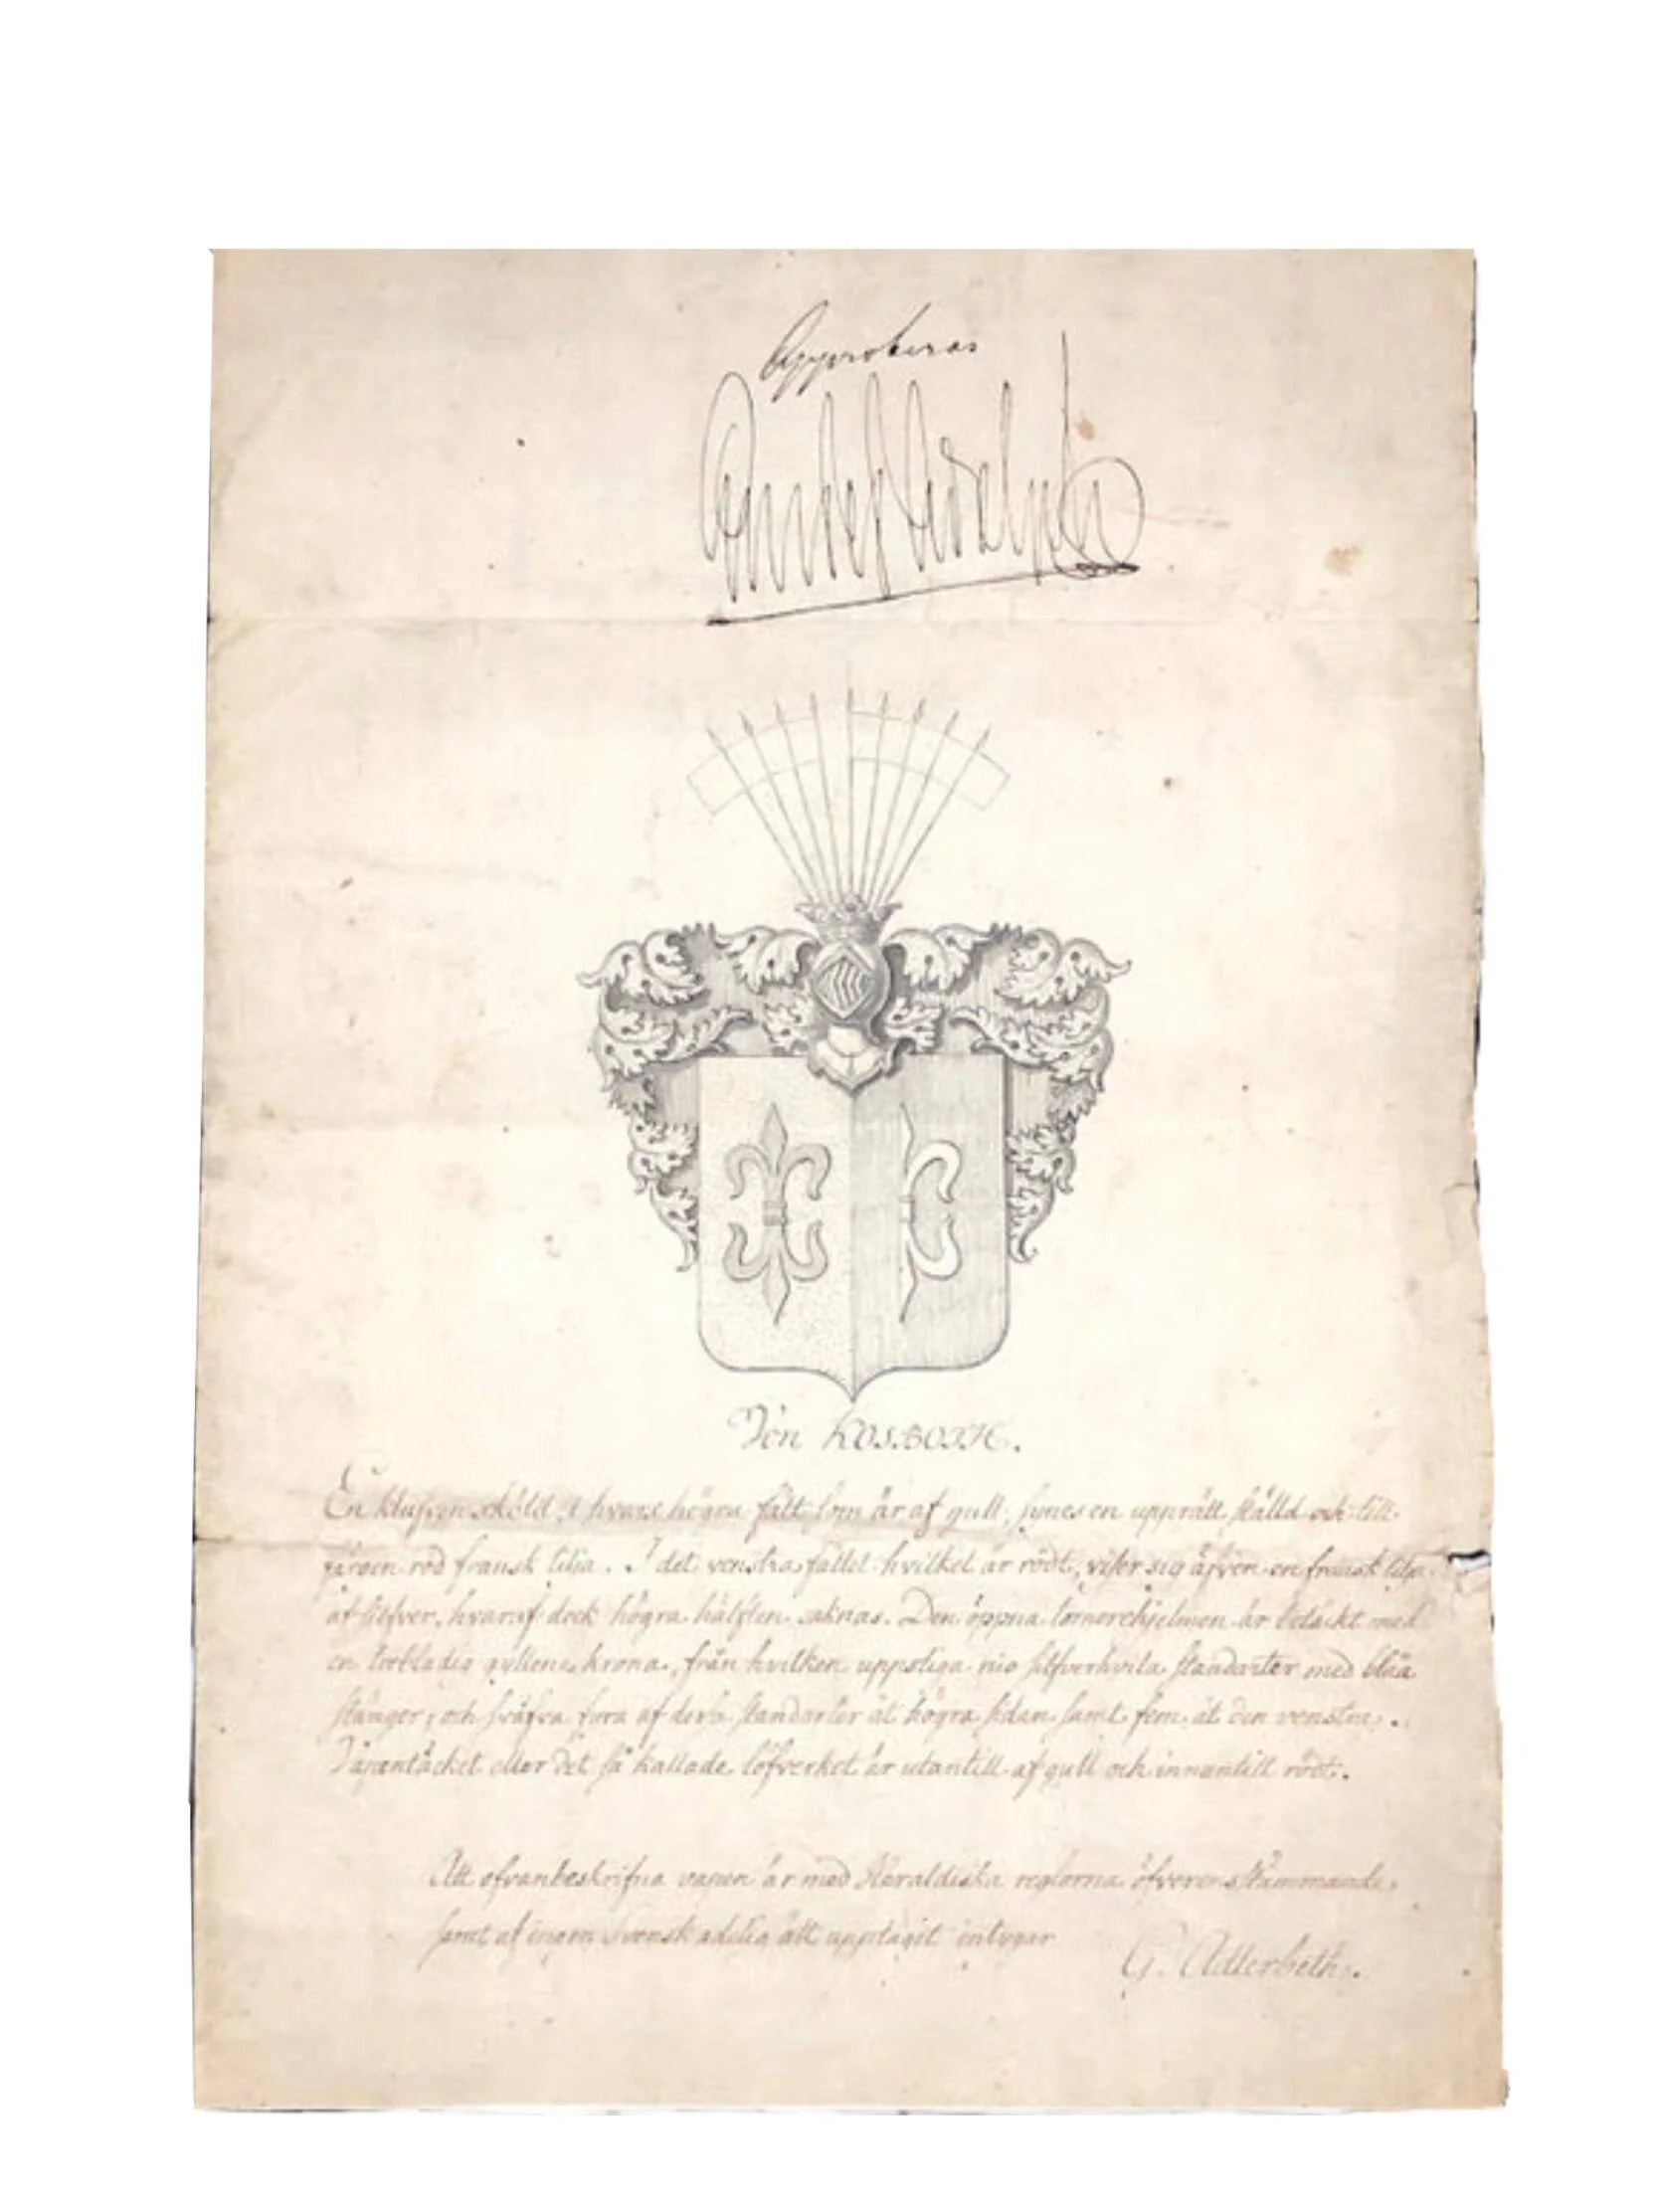 Approberas
Gustaf Adolph
Von KOSBOTH.
En klufven sköld, i hvars högra fält som är af gull, synes en upprätt ställd och till
färgen röd fransk lilja. I det venstra fältet hvilket är rödt, viser sig äfven en fransk lilja
af silfver, hvaraf dock högra hälften saknas. Den öppna tornerehjelmen är betäckt med
en gyllene krona, från hvilken uppstiga nio silfverhvita standarter med blåa
stänger, och sväfva fyra af dessa standarter åt högra sidan samt fem åt den venstra.
Vapentäcket eller det så kallade löfverket är utantill af gull och innantill rödt.
Att ofvanbeskrifna vapen är med Heraldiska reglorna öfverensstämmande,
samt af ingen Svensk adelig ätt upptagit intygar
G. Adlerbeth.